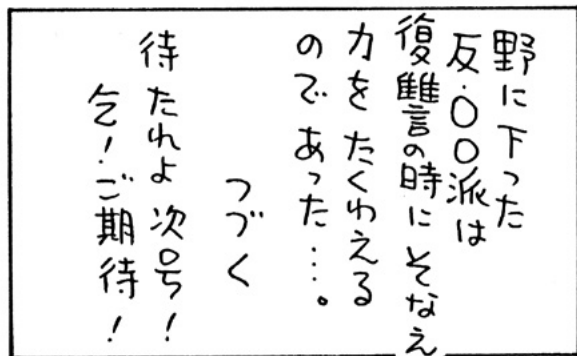 野に下った
反・〇〇派は
復讐の時にそなえ
力をたくわえる
のであった…。
つづく
待たれよ次号!
乞!ご期待!